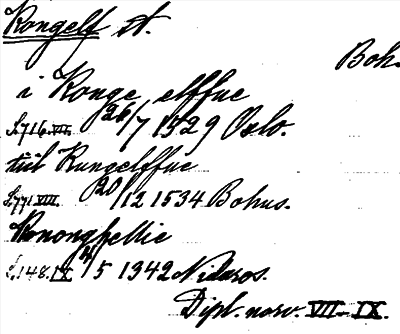 Kongelf st.
Boh.
i Konge elffue
S.716.VII. 26/7 1529 Oslo.
till Kungelffue
S.771.VIII. 20/12 1534 Bohus.
Kononghellie
S.148.IX. 4/5 1342 Nidaros.
Dipl. norv. VII-IX.